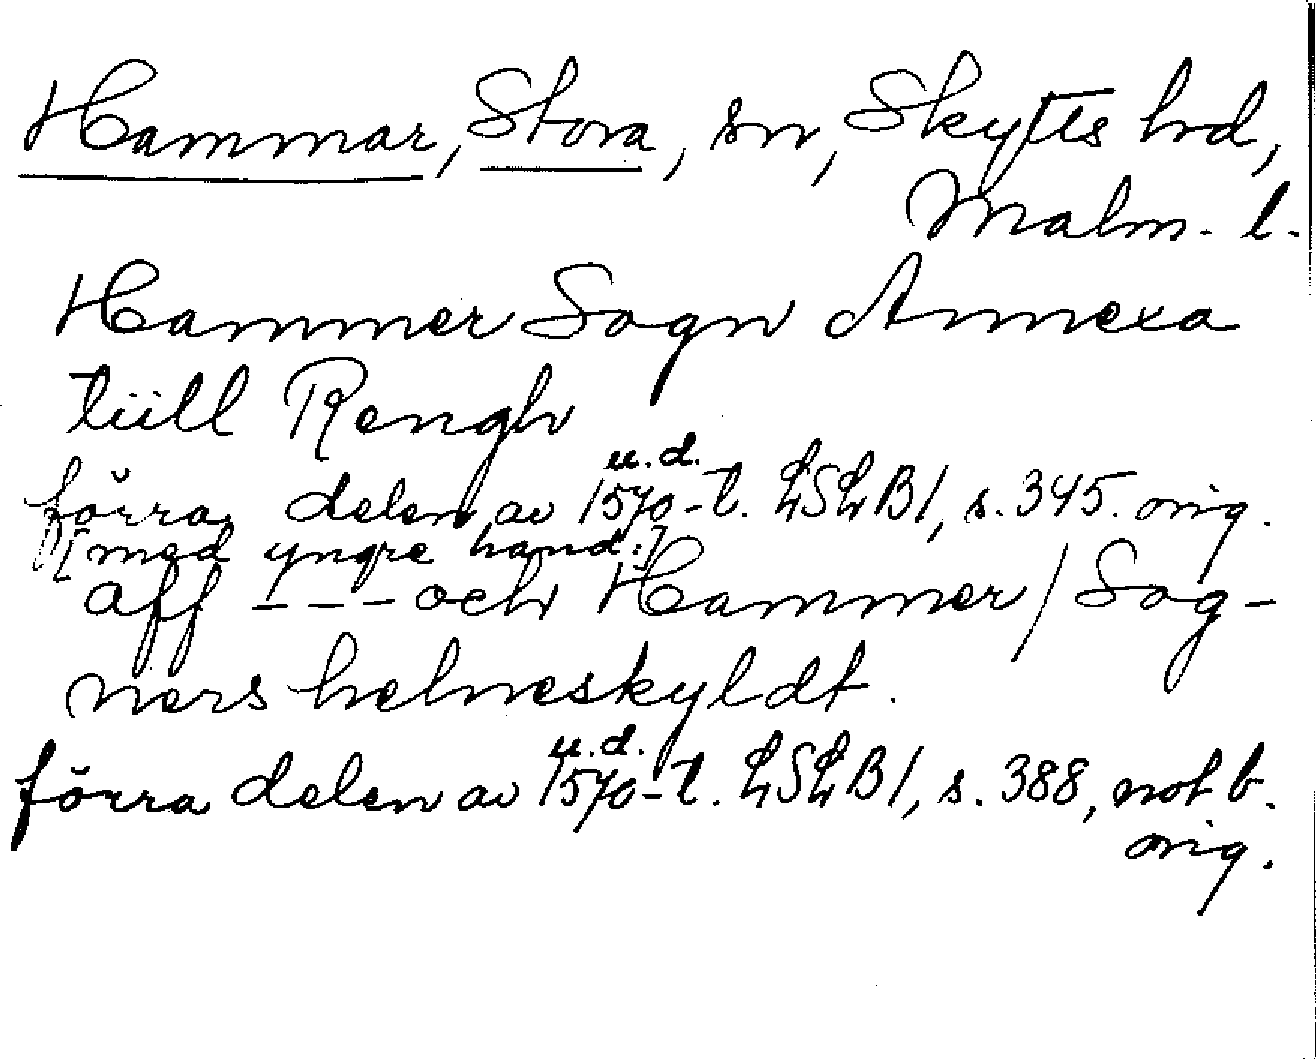 Hammar, Stora, sn, Skytts hd,
Malm. l.
Hammer Sogn Annexa
tiill Rengh
förra delen av u.d. 1570-t. LSLB1, s. 345. orig.
[med yngre hand:]
aff --- och Hammer / Sog-
ners helneskyldt.
förra delen av u.d. 1570-t. LSLB1, s. 388, not b.
orig.